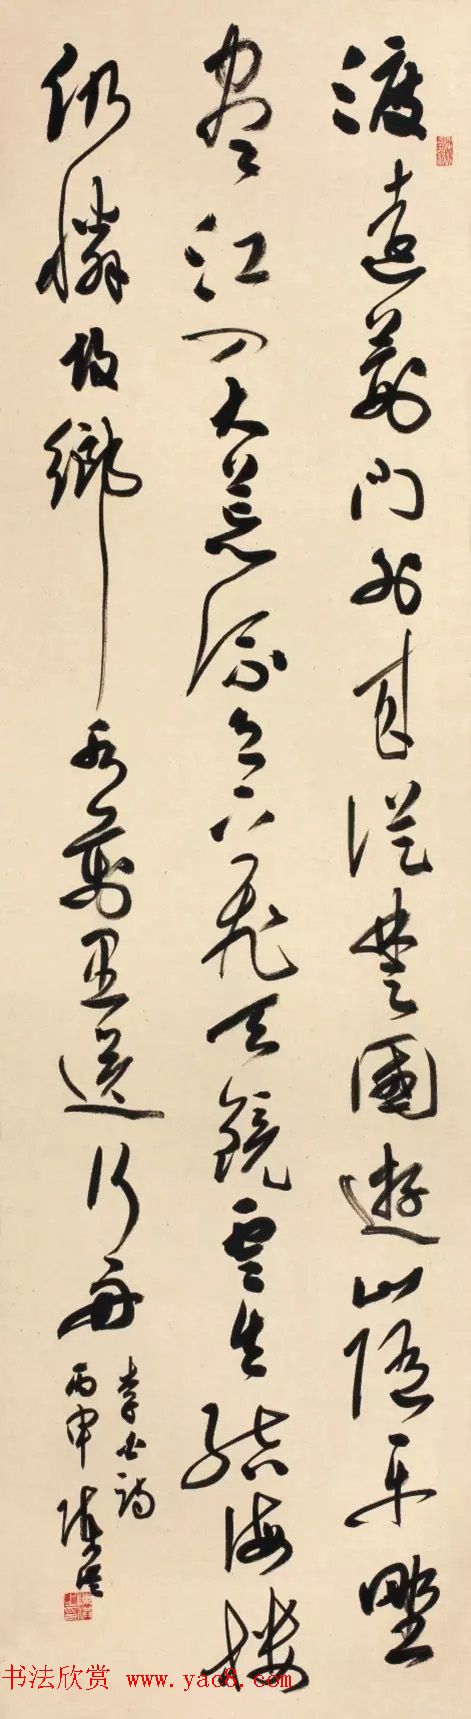 渡遠荊門外来從楚國遊山隨平野
盡江入大荒流月下飛天鏡雲生結海樓
仍憐故鄉水萬里送行舟
李白詩
丙申陳
书法欣赏 www.yac8.com